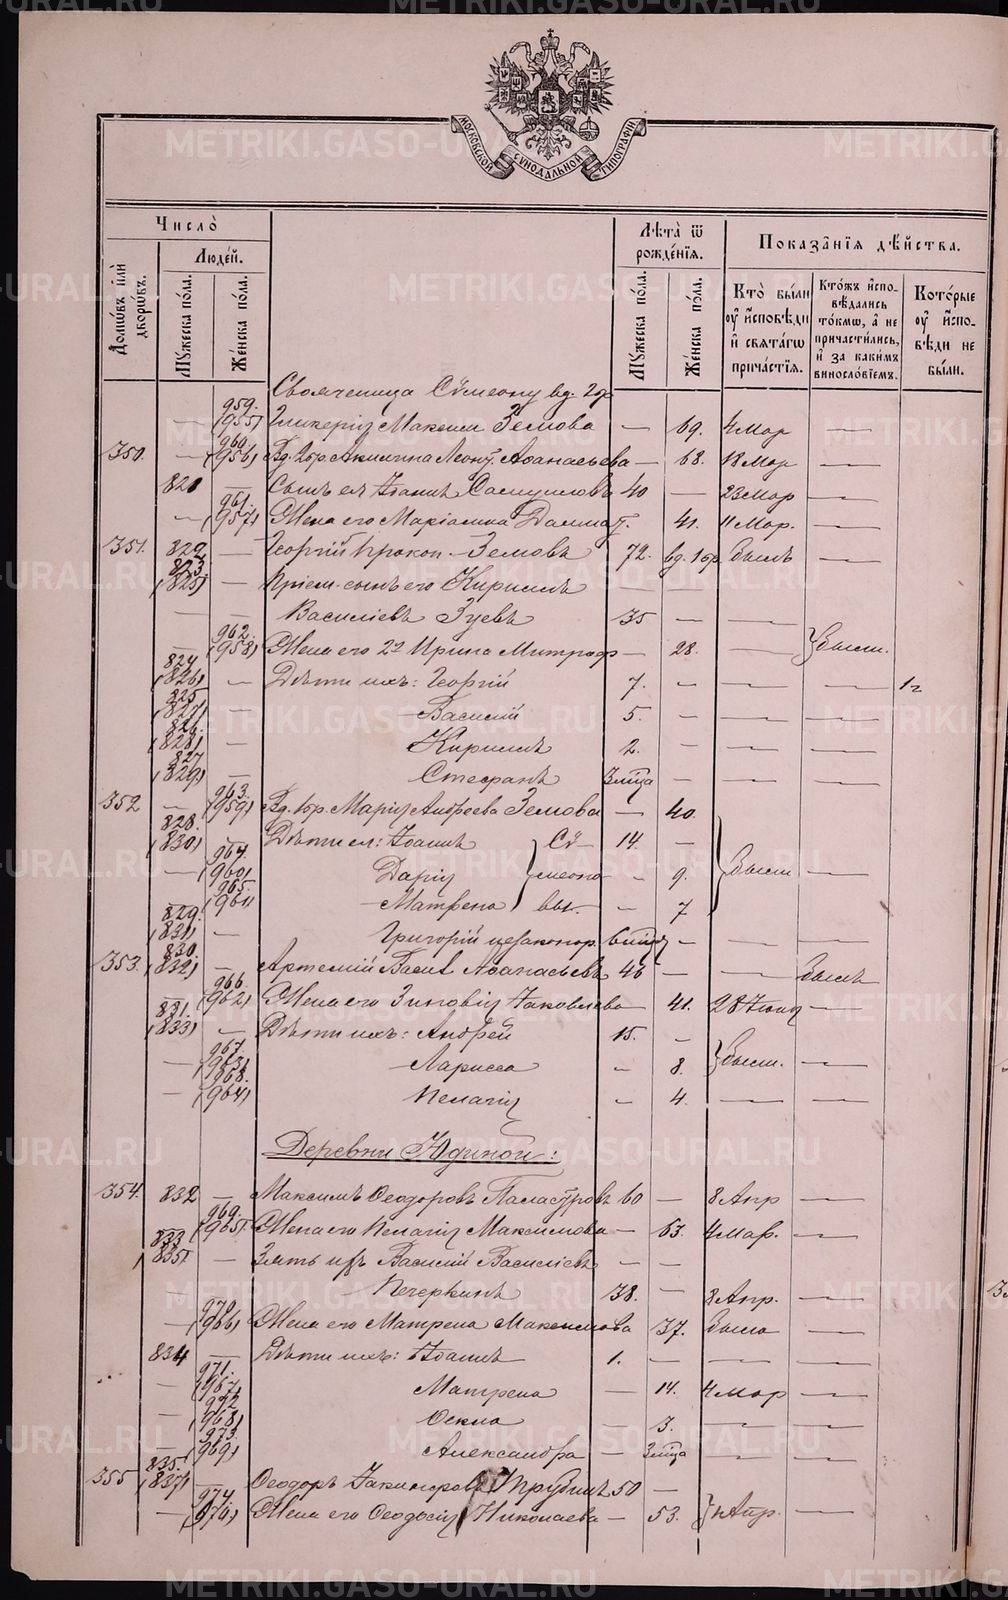 МОСКОВСКОЙ СѴНОДАЛЬНОЙ ТИПОГРАФІИ
Число̀
Домѡвъ и҆лѝ дворѡ́въ.
Люде́й.
Мꙋ́жеска по́ла.
Же́нска по́ла.
Лѣ́та ѿ рожде́нїѧ.
Мꙋ́жеска по́ла.
Же́нска по́ла.
Показа̑нїѧ дѣ́йства.
Кто̀ бы́ли оу҆ и҆сповѣди и҆ свѧта́гѡ прича́стїѧ.
Кто́жъ и҆сповѣ́дались то́кмѡ, а҆ не причасти́лись, и҆ за каки́мъ винослоⷡ҇їемъ.
Кото́рые оу҆ и҆сповѣди не бы́ли.
Своячeница Сѵмеону вд. 2бр
— 959. (955) Гликерія Максим. Зетова — 69. 4 Мар —
350. — 960. (956) Вд. 2бр. Акилина Леонт. Аѳанасьева — 68. 18 Мар —
821 — Сынъ ея Іоаннъ Самуиловъ 40 — 23 Мар —
— 961. (957) Жена его Маріамна Далмат. 41. 11 Мар. —
351. 822 — Георгій Прокоп. Зетовъ 72. вд. 1бр былъ —
823 (825) — Пріем. сынъ его Кириллъ — —
— — Василіевъ Зуевъ 35 — —
— 962. (958) Жена его 2я Ирина Митроф — 28. — } Были.
824 (826) — Дѣти ихъ: Георгій 7. — — — 1г
825 (827) — Василій 5. — — —
826. (828) — Кириллъ 2. — — —
827 (829) — Стефанъ 3 мѣца — — —
352 — 963. (959) Вд. 1бр. Марія Андреева Зетова — 40.
828. (830) — Дѣти ея: Іоаннъ } Сѵ- 14. — } Были —
— 964. (960) Дарія меоно- - 9.
— 965. (961) Матрена вы. - 7
829. (831) — Григорій незаконор. 6 мѣц — — —
353. 830. (832) — Артемій Васил Аѳанасьевъ 46 — — былъ
— 966 (962) Жена его Зиновія Іаковлева — 41. 28 Іюня —
831. (833) — Дѣти ихъ: Андрей 15. —
— 967. (963) Ларисса - 8. } были. —
— 968. (964) Пелагія - 4. — —
Деревни Юдиной:
354. 832 — Максимъ Ѳеодоровъ 60 — 8 Апр —
— 969. (965) Жена его Пелагія Максимова — 63. 4 Мар. —
833 (835) — Зять ихъ Василій Василіевъ — —
— Печеркинъ 38. — 8 Апр. —
— 970 (966) Жена его Матрена Максимова 37. была —
834 — Дѣти ихъ: Іоаннъ 1. — — —
— 971. (967) Матрена — 14. 4 Мар —
— 972 (968) Ѳекла — 3. — —
— 973. (969) Александра — 3 мѣца — —
355 835. (837) — Ѳеодоръ Трубинъ 50 —
— 974 (970) Жена его Ѳеодосія Николаева — 53. } Апр. —
METRIKI.GASO-URAL.RU